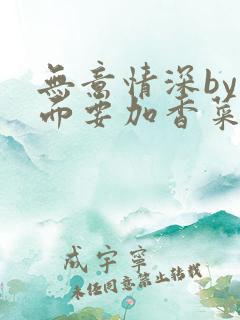 無意情深by
而要加香菜
成宇寧
未经同意禁止转载